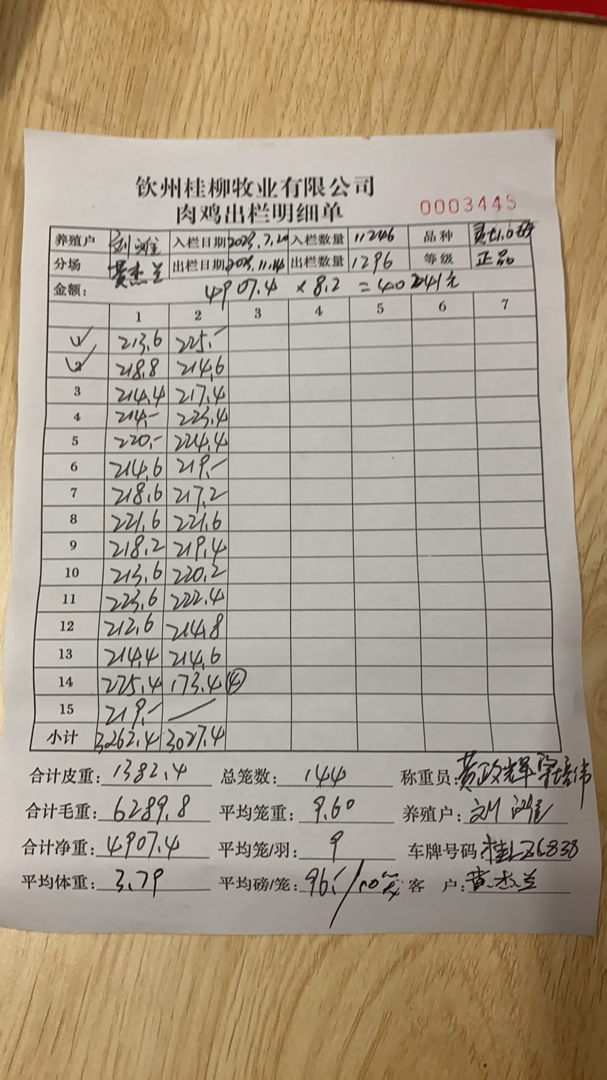 钦州桂柳牧业有限公司
肉鸡出栏明细单
0003445
养殖户 刘 入栏日期 入栏数量 11246 品种
分场 黄杰兰 出栏日期 出栏数量 1296 等级 正品
金额: 4907.4 × 8.2 = 40241元
1 2 3 4 5 6 7
1 213.6 225.-
2 218.8 214.6
3 214.4 217.4
4 214.- 223.4
5 220.- 224.4
6 214.6 219.-
7 218.6 217.2
8 221.6 221.6
9 218.2 219.4
10 213.6 220.2
11 223.6 222.4
12 212.6 214.8
13 214.4 214.6
14 225.4 173.4 ④
15 219.-
小计 3262.4 3027.4
合计皮重: 1382.4 总笼数: 144 称重员: 黄政辉
合计毛重: 6289.8 平均笼重: 9.60 养殖户: 刘
合计净重: 4907.4 平均笼/羽: 9 车牌号码:
平均体重: 3.79 平均磅/笼: 96.- 客 户: 黄杰兰